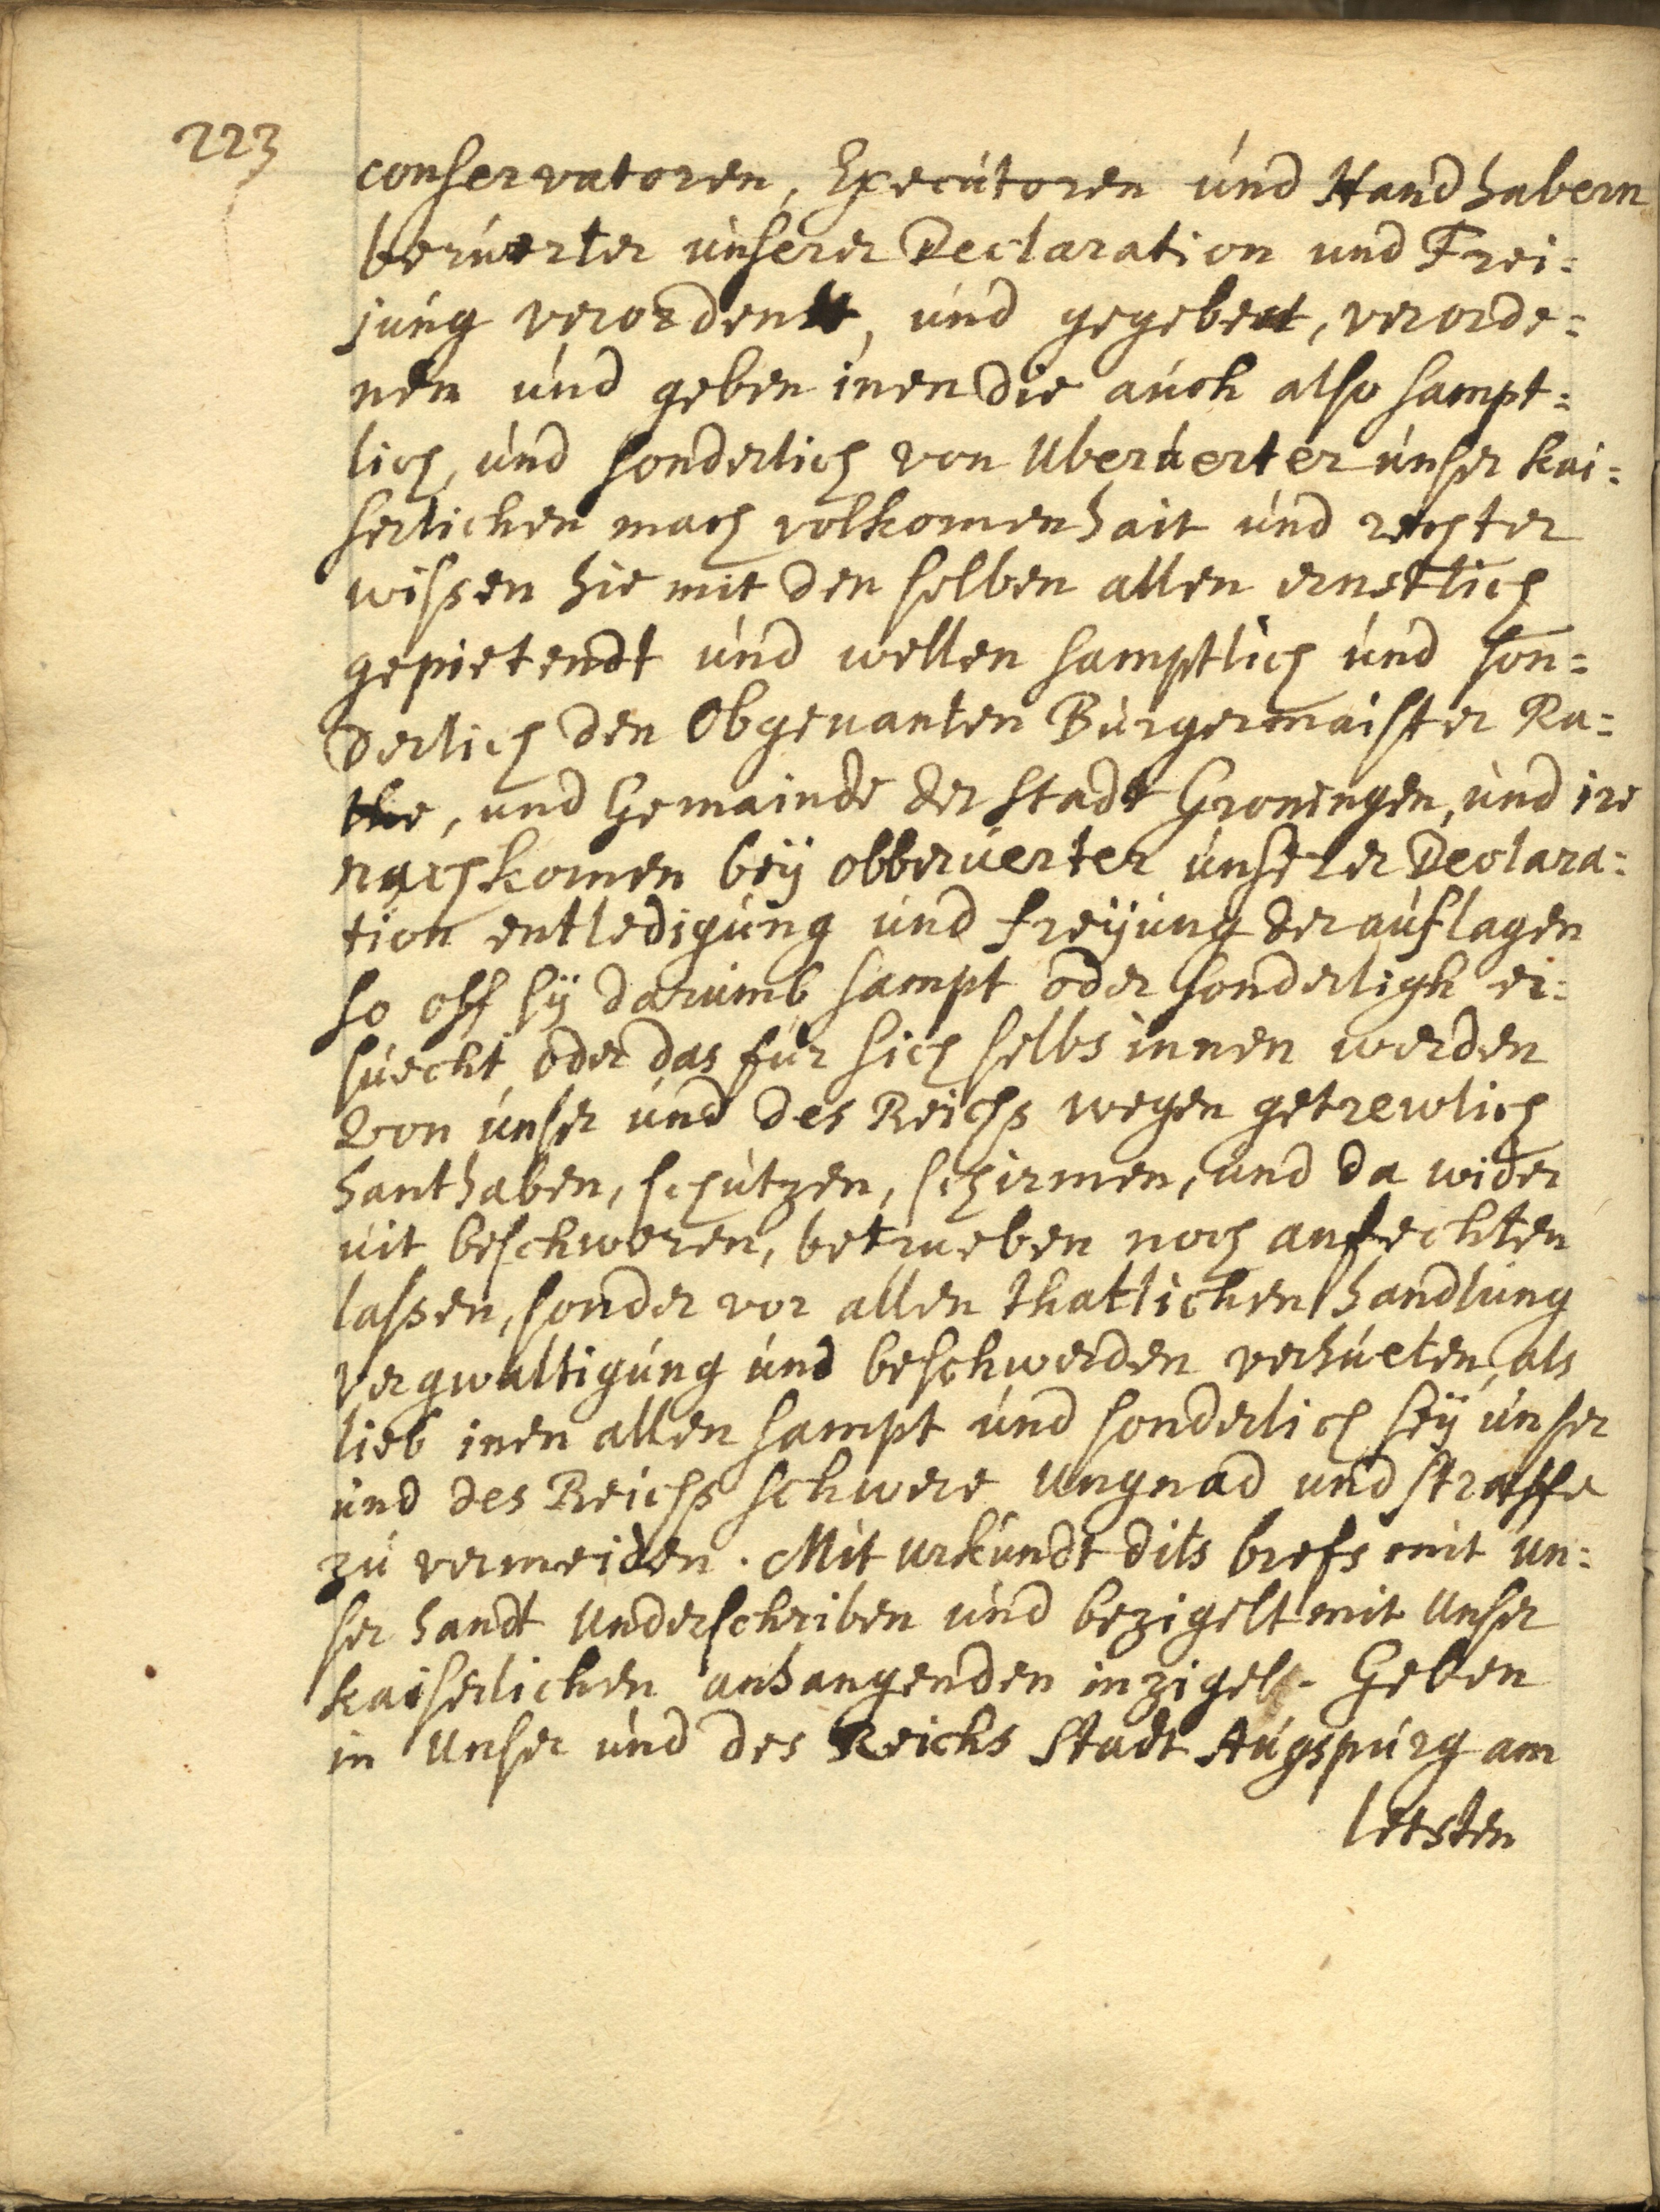 223
conservatoren, Executoren und Handhabern
beruerter unserer Declaration und Frei=
jung verordent, und gegebent, verorde=
nen und geben inen die auch also sampt=
lich, und sonderlich von Uberuerter unser kai=
serlichen mach volkomenhait und rechter
wissen hie mit den selben allen ernstlich
gepietendt und wellen samptlich und son=
derlich den Obgenanten Burgermaister Ra=
the, und Gemainde der stadt Groningen, und ire
nachkomen beÿ obberuerter unserer Declara=
tion entledigung und freÿung der auflagen
so off sÿ darumb sampt oder sonderligh er=
suecht oder das fur sich selbs innen werden
Von unser und des Reichs wegen getrewlich
hanthaben, schutzen, schirmen, und da wider
nit beschweren, betrueben noch anfechten
lassen, sonder vor allen thatlichen handlung
vergwaltigung und beschwerden verhueten, als
lieb inen allen sampt und sonderlich seÿ unser
und des Reichs schwere Ungnad und straffe
zu vermeiden. Mit urkundt dits brefs mit un=
ser handt underschriben und bezigelt mit Unser
kaiserlichen anhangenden inzigel. Geben
in Unser und des Reichs Stadt Augspurg am
letsten